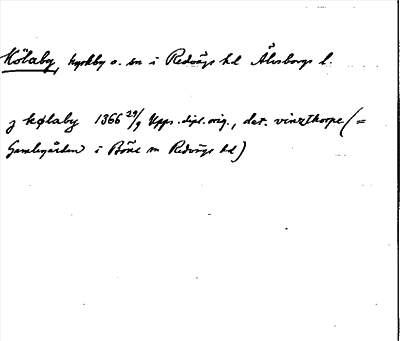 Kölaby, kyrkby o. sn i Redvägs hd Älvsborgs l.
j kølaby 1366 29/9 Upps. dipl. orig., dat. vinzthorpe (=
Gamlegården i Böne sn Redvägs hd)